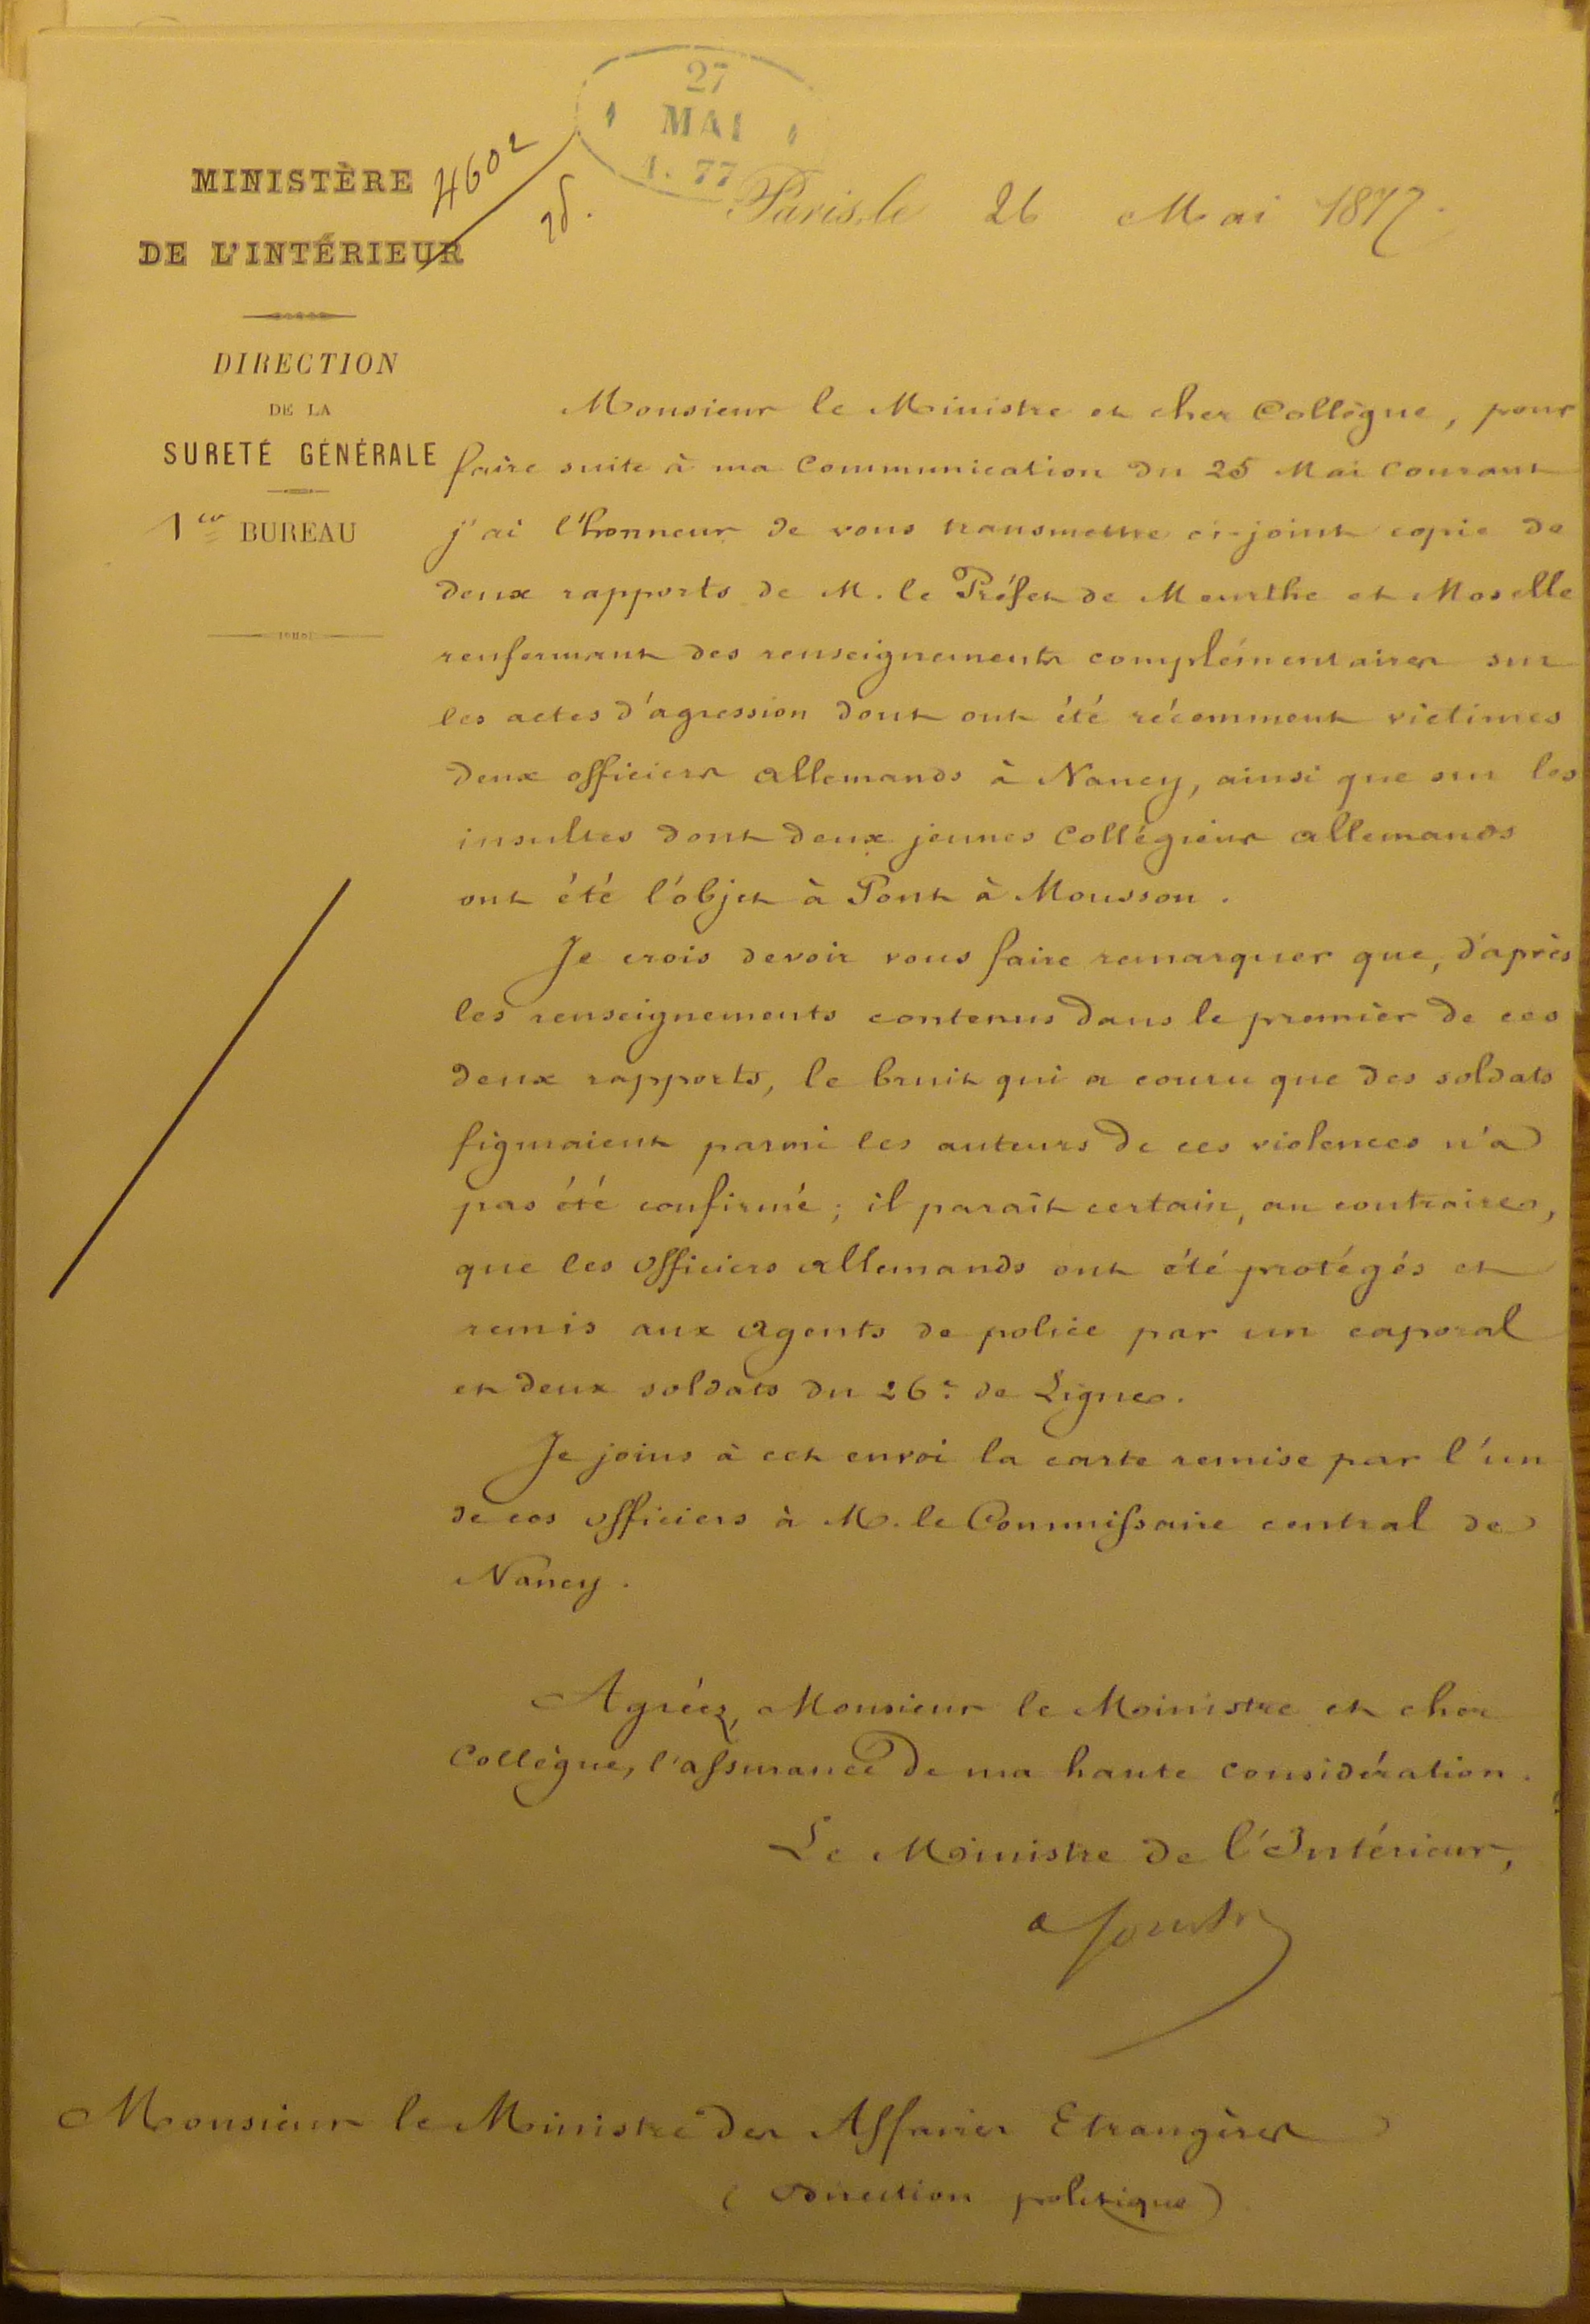 27
MAI
1. 77
4602
MINISTÈRE
DE L'INTÉRIEUR
Paris, le 26 Mai 1877.
DIRECTION
DE LA
SURETÉ GÉNÉRALE
1er BUREAU
Monsieur le Ministre et cher Collègue, pour
faire suite à ma Communication du 25 Mai Courant
j'ai l'honneur de vous transmettre ci-joint copie de
deux rapports de M. le Préfet de Meurthe et Moselle
renfermant des renseignements complémentaires sur
les actes d'agression dont ont été récemment victimes
deux officiers allemands à Nancy, ainsi que sur les
insultes dont deux jeunes Collégiens allemands
ont été l'objet à Pont à Mousson.
Je crois devoir vous faire remarquer que, d'après
les renseignements contenus dans le premier de ces
deux rapports, le bruit qui a couru que des soldats
figuraient parmi les auteurs de ces violences n'a
pas été confirmé ; il paraît certain, au contraire,
que les Officiers allemands ont été protégés et
remis aux Agents de police par un caporal
et deux soldats du 26e de Ligne.
Je joins à cet envoi la carte remise par l'un
de ces officiers à M. le Commissaire central de
Nancy.
Agréez, Monsieur le Ministre et cher
Collègue, l'assurance de ma haute considération.
Le Ministre de l'Intérieur,
Monsieur le Ministre des Affaires Etrangères
(Direction politique)